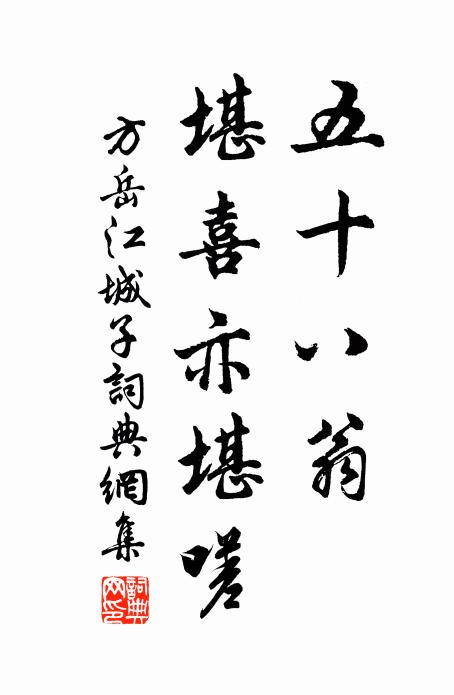 五十八翁
堪喜亦堪嗟
方岳江城子詞典網集
詞典
网印